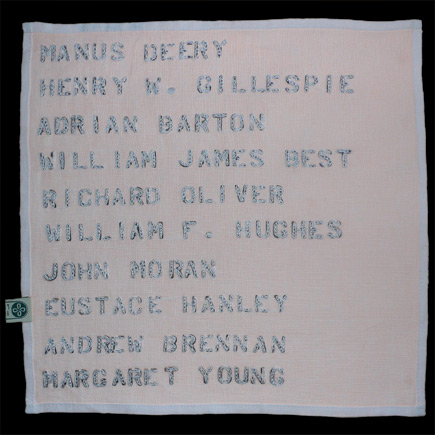 MANUS DEERY
HENRY W. GILLESPIE
ADRIAN BARTON
WILLIAM JAMES BEST
RICHARD OLIVER
WILLIAM F. HUGHES
JOHN MORAN
EUSTACE HANLEY
ANDREW BRENNAN
MARGARET YOUNG